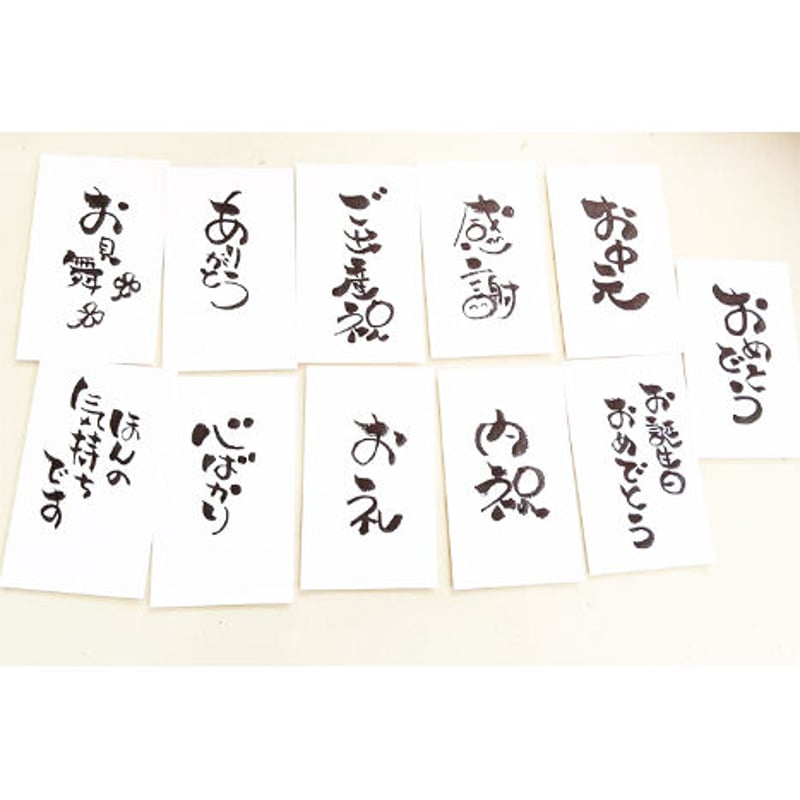 お見
舞
ありがとう
ご出産祝
感謝
お中元
おめでとう
ほんの
気持ち
です
心ばかり
お礼
内祝
お誕生日
おめでとう